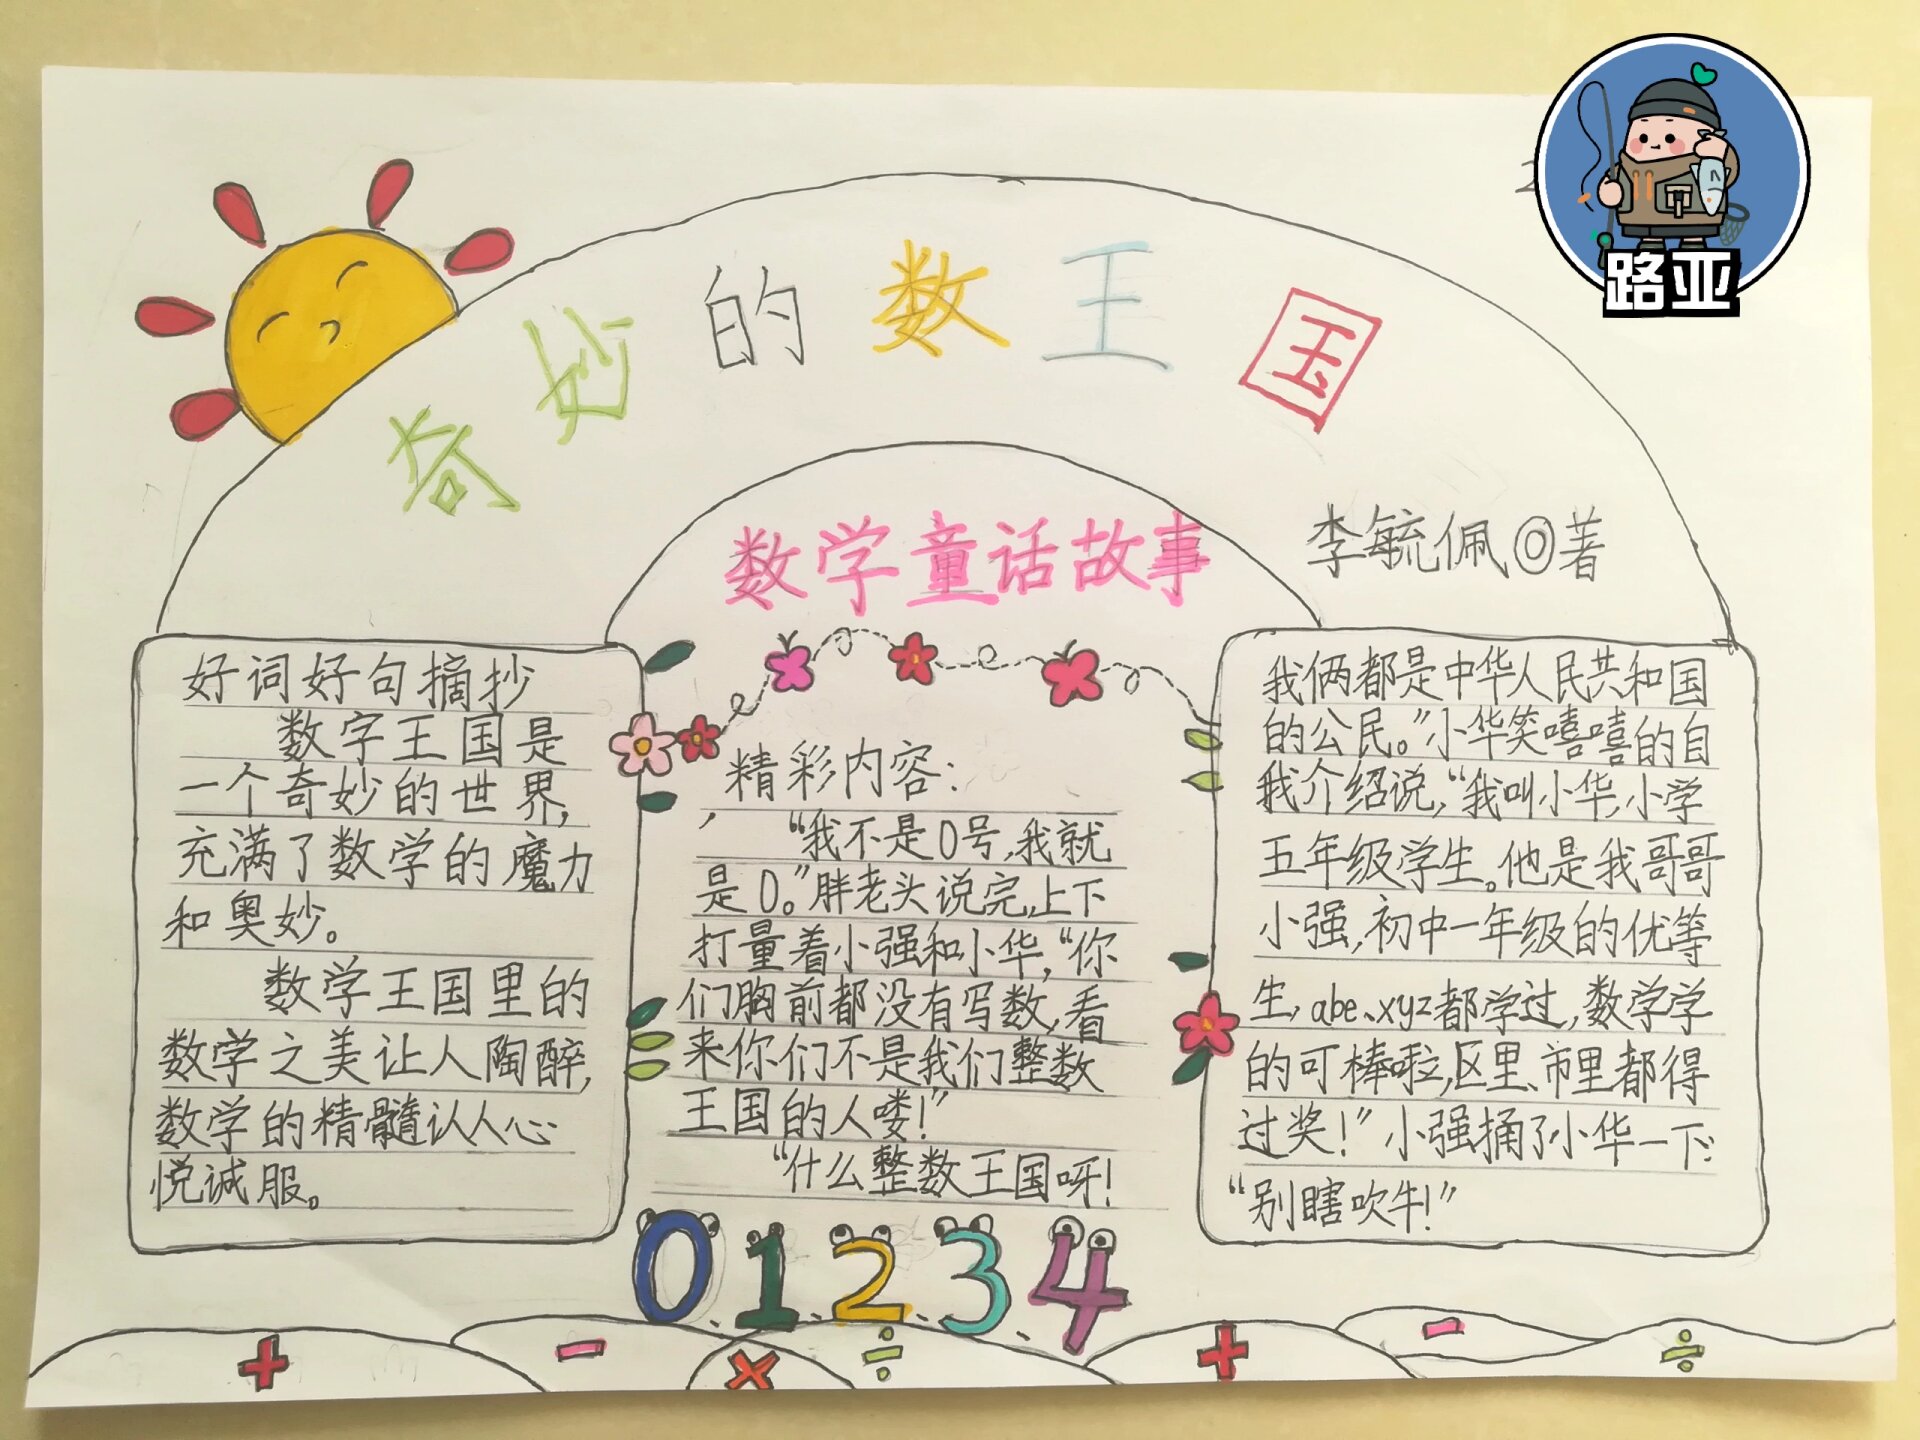 奇妙的数王国
路亚
数学童话故事
李毓佩◎著
好词好句摘抄
数字王国是
一个奇妙的世界,
充满了数学的魔力
和奥妙。
数学王国里的
数学之美让人陶醉,
数学的精髓认人心
悦诚服。
精彩内容:
“我不是0号,我就
是0。”胖老头说完,上下
打量着小强和小华,“你
们胸前都没有写数,看
来你们不是我们整数
王国的人喽!”
“什么整数王国呀!
我俩都是中华人民共和国
的公民。”小华笑嘻嘻的自
我介绍说,“我叫小华,小学
五年级学生。他是我哥哥
小强,初中一年级的优等
生,abe、xyz都学过,数学学
的可棒啦,区里、市里都得
过奖!”小强捅了小华一下:
“别瞎吹牛!”
0 1 2 3 4
+ - × ÷ + - ÷